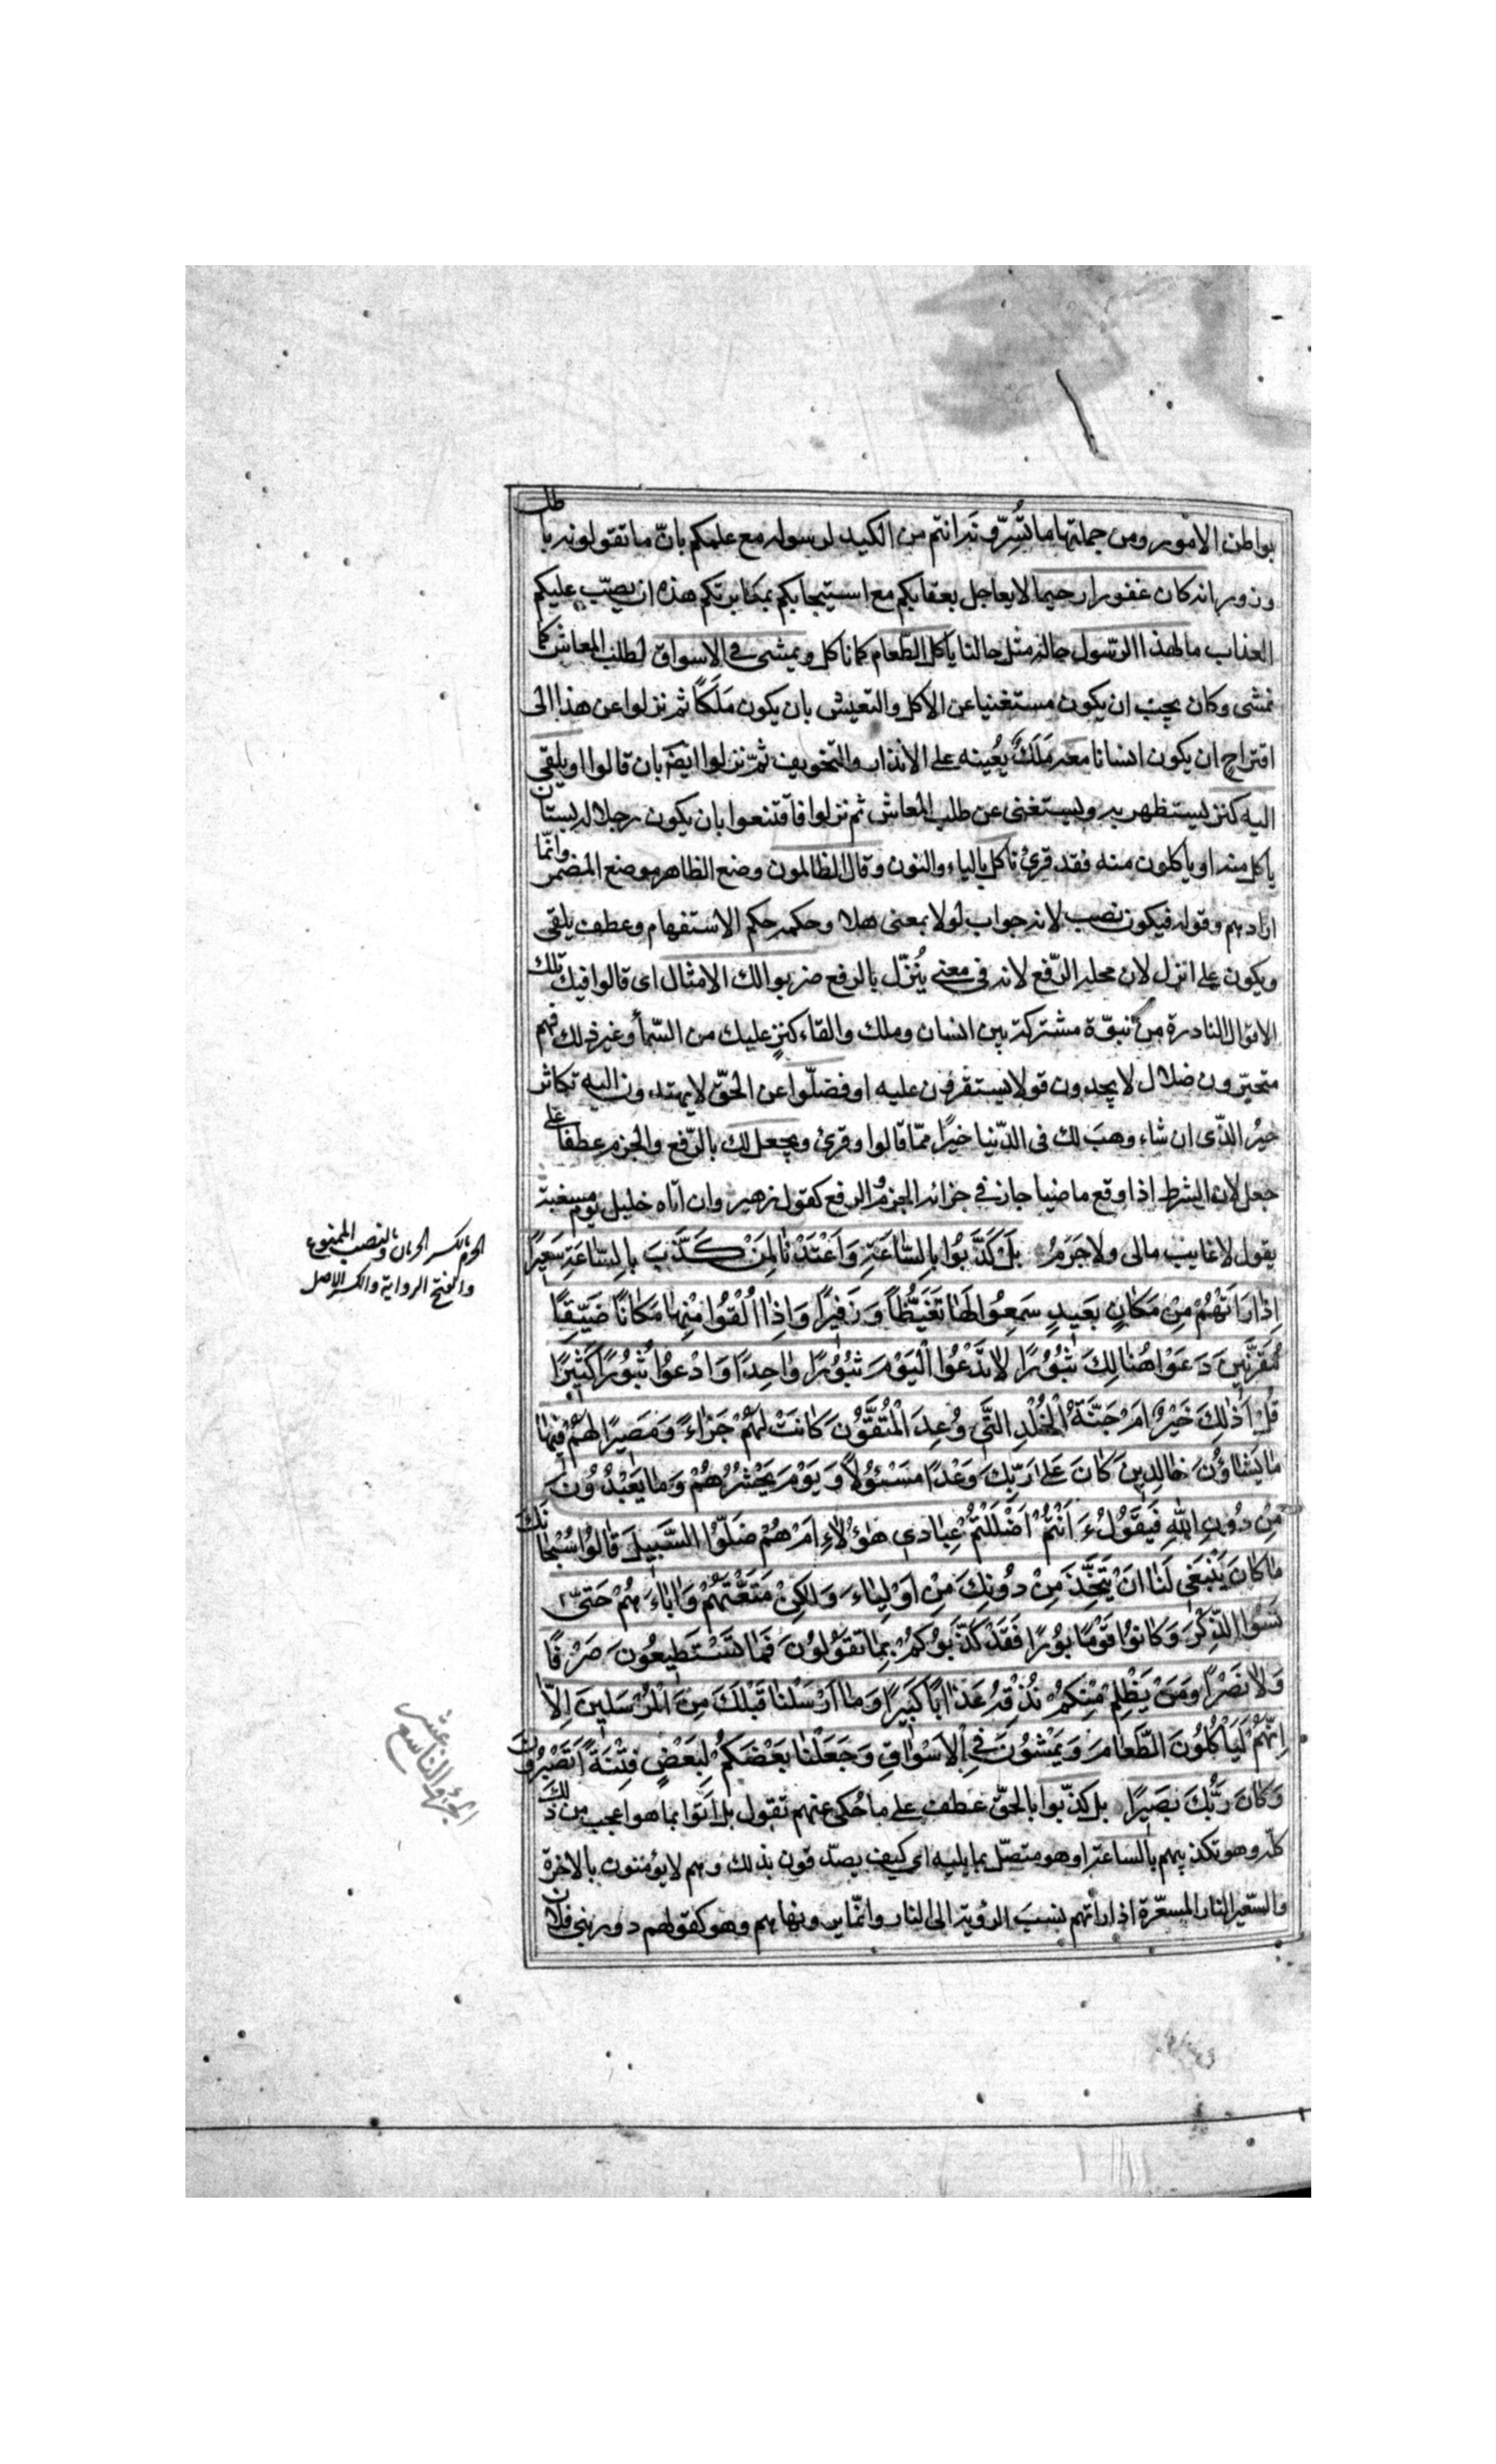 بواطن الامور ومن جملتها ما تُسِرّونه انتم من الكيد لرسوله مع علمكم بانّ ما تقولونه باطل
وزور انه كان غفورا رحيما لا يعاجل بعقابكم مع استيجابكم بمكابرتكم هذه ان يصبّ عليكم
العذاب ما لهذا الرسول حاله مثل حالنا ياكل الطّعام كما ناكل ويمشى فى الاسواق لطلب المعاش كما
نمشى وكان يجب ان يكون مستغنيا عن الاكل والتعيش بان يكون مَلَكًا ثم نزلوا عن هذا الى
اقتراح ان يكون انسانا معه مَلَكٌ يُعينه على الانذار والتخويف ثمّ نزلوا ايضا بان قالوا او يلقى
اليه كنز يستظهر به ويستغنى عن طلب المعاش ثم نزلوا فاقتنعوا بان يكون رجلا له بستان
ياكل منه او ياكلون منه فقد قرئ ناكل بالياء والنون وقال الظالمون وضع الظاهر موضع المضمر وانّما
ارادهم وقوله فيكون نصب لانه جواب لولا بمعنى هلا وحكمه حكم الاستفهام وعطف يلقى
ويكون على انزل لان محله الرّفع لانه فى معنى يُنزّل بالرفع ضربوا لك الامثال اى قالوا فيك تلك
الاقوال النادرة من نبوّة مشتركة بين انسان وملك والقاء كنزٍ عليك من السّماء وغير ذلك فهم
متحيّرون ضلال لا يجدون قولا يستقرون عليه او فضلّوا عن الحقّ لا يهتدون اليه تكاثر
خيرُ الذّى ان شاء وهبَ لك فى الدّنيا خيرًا ممّا قالوا وقرئ ويجعل لك بالرّفع والجزم عطفا على
جعل لان الشرط اذا وقع ماضيا جاز فى جزائه الجزم والرفع كقول زهير وان اتاه خليل يوم مسغبة
يقول لا غايب مالى ولا حَرَمُ بَلْ كَذَّبُوا بِالسَّاعَةِ وَاَعْتَدْنَا لِمَنْ كَذَّبَ بِالسَّاعَةِ سَعِيرًا
اِذَا رَاَتْهُمْ مِنْ مَكَانٍ بَعِيدٍ سَمِعُوا لَهَا تَغَيُّظًا وَزَفِيرًا وَاِذَا اُلْقُوا مِنْهَا مَكَانًا ضَيِّقًا
مُقَرَّنِينَ دَعَوْا هُنَالِكَ ثُبُورًا لَا تَدْعُوا الْيَوْمَ ثُبُورًا وَاحِدًا وَادْعُوا ثُبُورًا كَثِيرًا
قُلْ اَذٰلِكَ خَيْرٌ اَمْ جَنَّةُ الْخُلْدِ الَّتِى وُعِدَ الْمُتَّقُونَ كَانَتْ لَهُمْ جَزَاءً وَمَصِيرًا لَهُمْ فِيهَا
مَا يَشَاؤُنَ خَالِدِينَ كَانَ عَلَى رَبِّكَ وَعْدًا مَسْئُولًا وَيَوْمَ يَحْشُرُهُمْ وَمَا يَعْبُدُونَ
مِنْ دُونِ اللّٰهِ فَيَقُولُ ءَاَنْتُمْ اَضْلَلْتُمْ عِبَادِى هٰؤُلَاءِ اَمْ هُمْ ضَلُّوا السَّبِيلَ قَالُوا سُبْحَانَكَ
مَا كَانَ يَنْبَغِى لَنَا اَنْ نَتَّخِذَ مِنْ دُونِكَ مِنْ اَوْلِيَاءَ وَلٰكِنْ مَتَّعْتَهُمْ وَاٰبَاءَهُمْ حَتَّى
نَسُوا الذِّكْرَ وَكَانُوا قَوْمًا بُورًا فَقَدْ كَذَّبُوكُمْ بِمَا تَقُولُونَ فَمَا تَسْتَطِيعُونَ صَرْفًا
وَلَا نَصْرًا وَمَنْ يَظْلِمْ مِنْكُمْ نُذِقْهُ عَذَابًا كَبِيرًا وَمَا اَرْسَلْنَا قَبْلَكَ مِنَ الْمُرْسَلِينَ اِلَّا
اِنَّهُمْ لَيَاْكُلُونَ الطَّعَامَ وَيَمْشُونَ فِى الْاَسْوَاقِ وَجَعَلْنَا بَعْضَكُمْ لِبَعْضٍ فِتْنَةً اَتَصْبِرُونَ
وَكَانَ رَبُّكَ بَصِيرًا بل كذّبوا بالحقّ عطف على ما حُكى عنهم تقول بل اَتَوا بما هو اعجب من ذلك
كلّه وهو تكذيبهم بالساعة او هو متصّل بما يليه اى كيف يصدّقون بذلك وهم لا يؤمنون بالاخرة
والسّعير النار المسعّرة اذا راتهم نسب الرؤية الى النار وانّما يرونها هم وهو كقولهم دور بنى فلان
الحرم بالكسر الحرمان وبالنصب الممنوع
والفتح الرواية والكسر الاصل
الجزؤ التاسع عشر